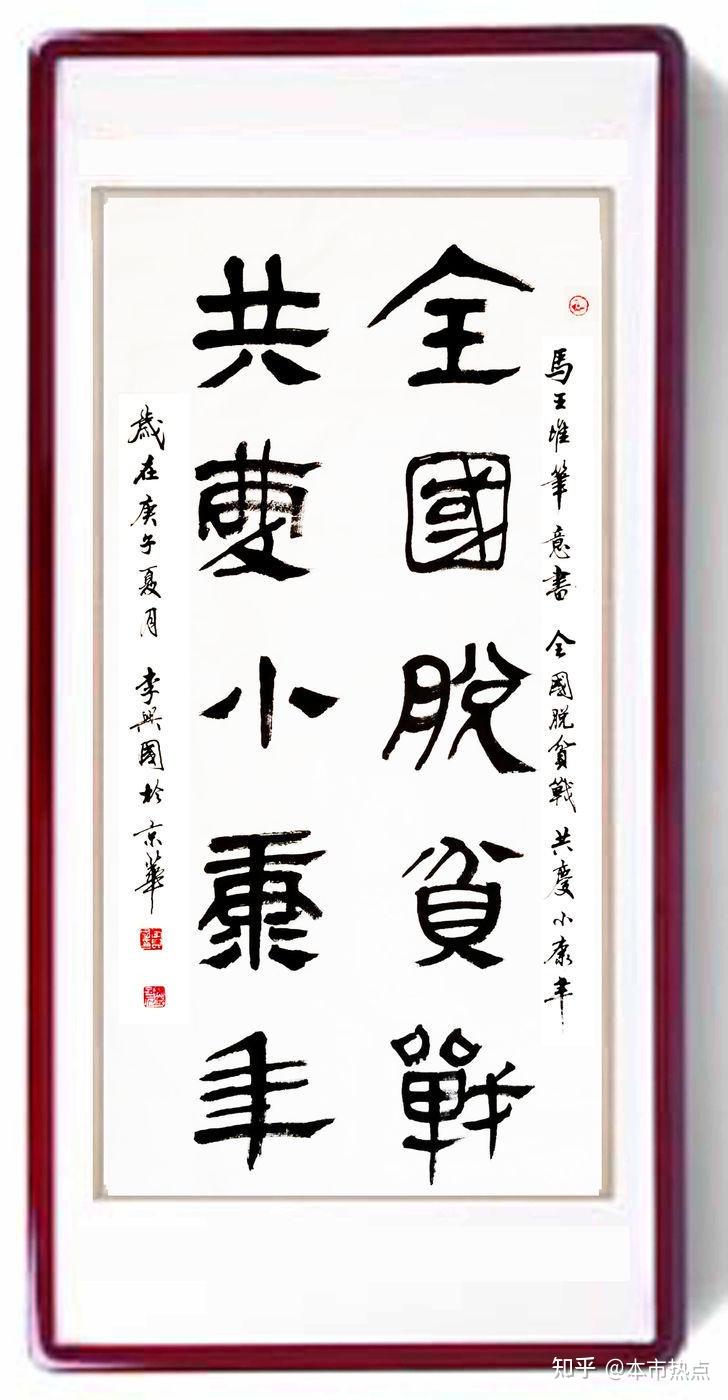 馬王堆筆意書 全國脫貧戰 共慶小康年
全國脫貧戰
共慶小康年
歲在庚子夏月 李興國於京華
知乎 @本市热点